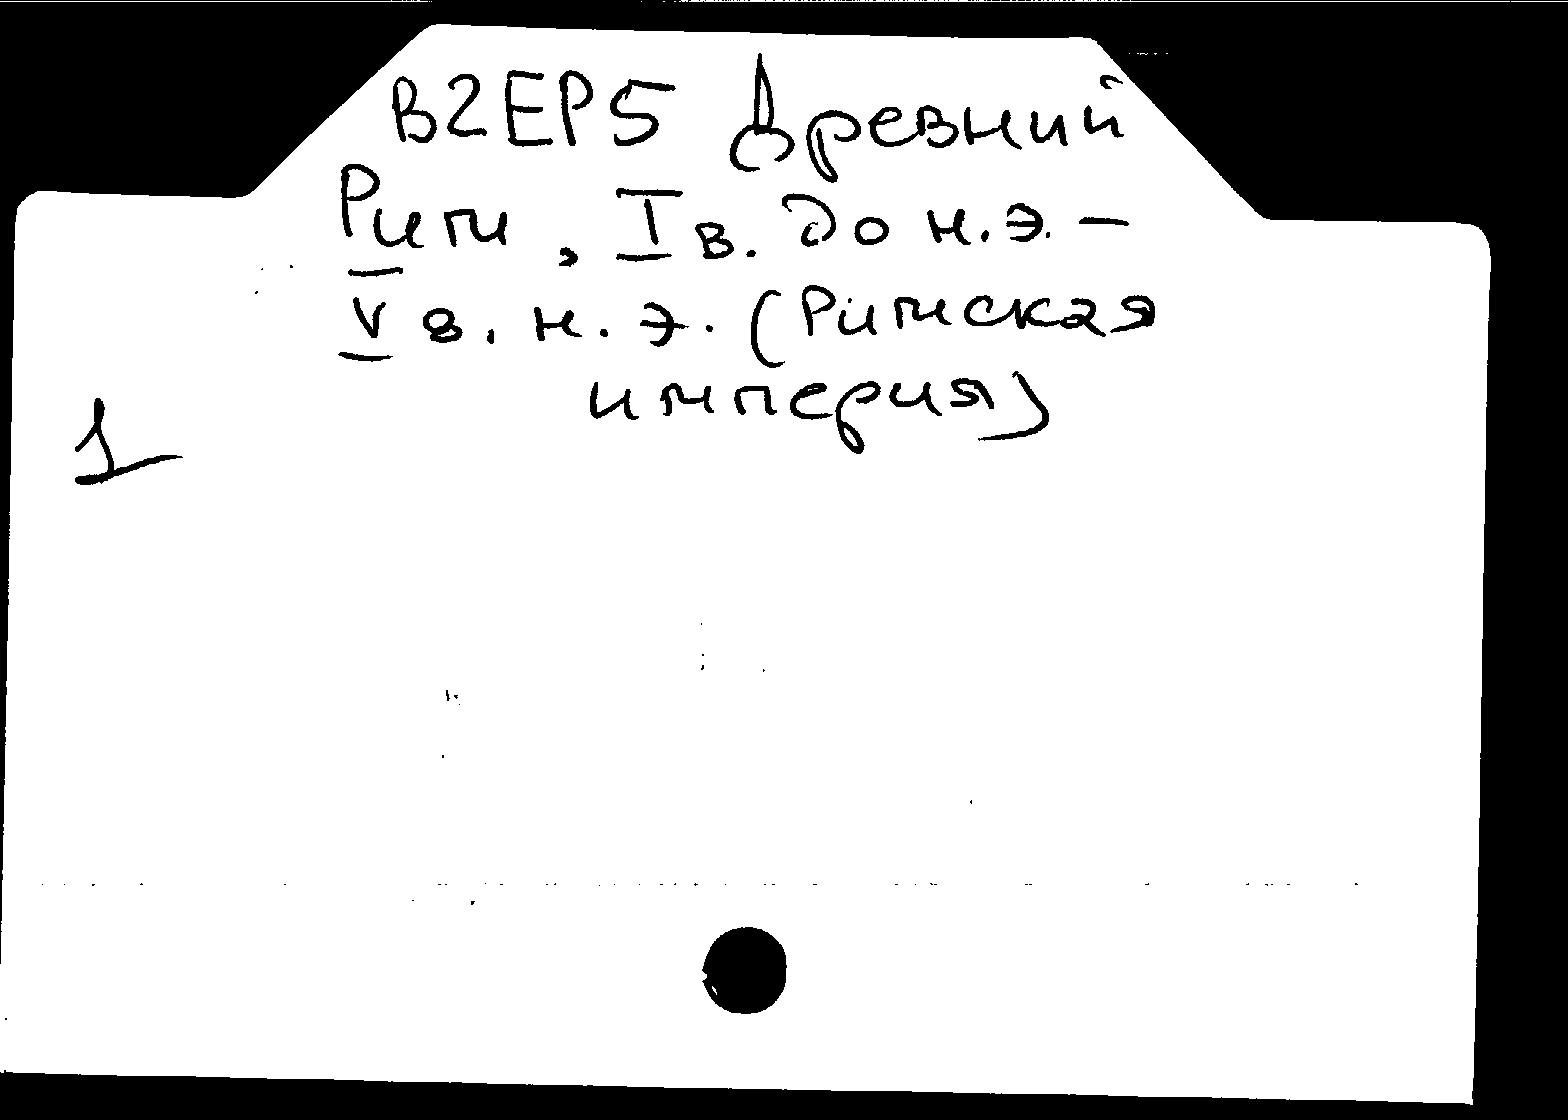 В2ЕР5 Древний
Рим, I в. до н.э. –
V в. н.э. (Римская
империя)
1